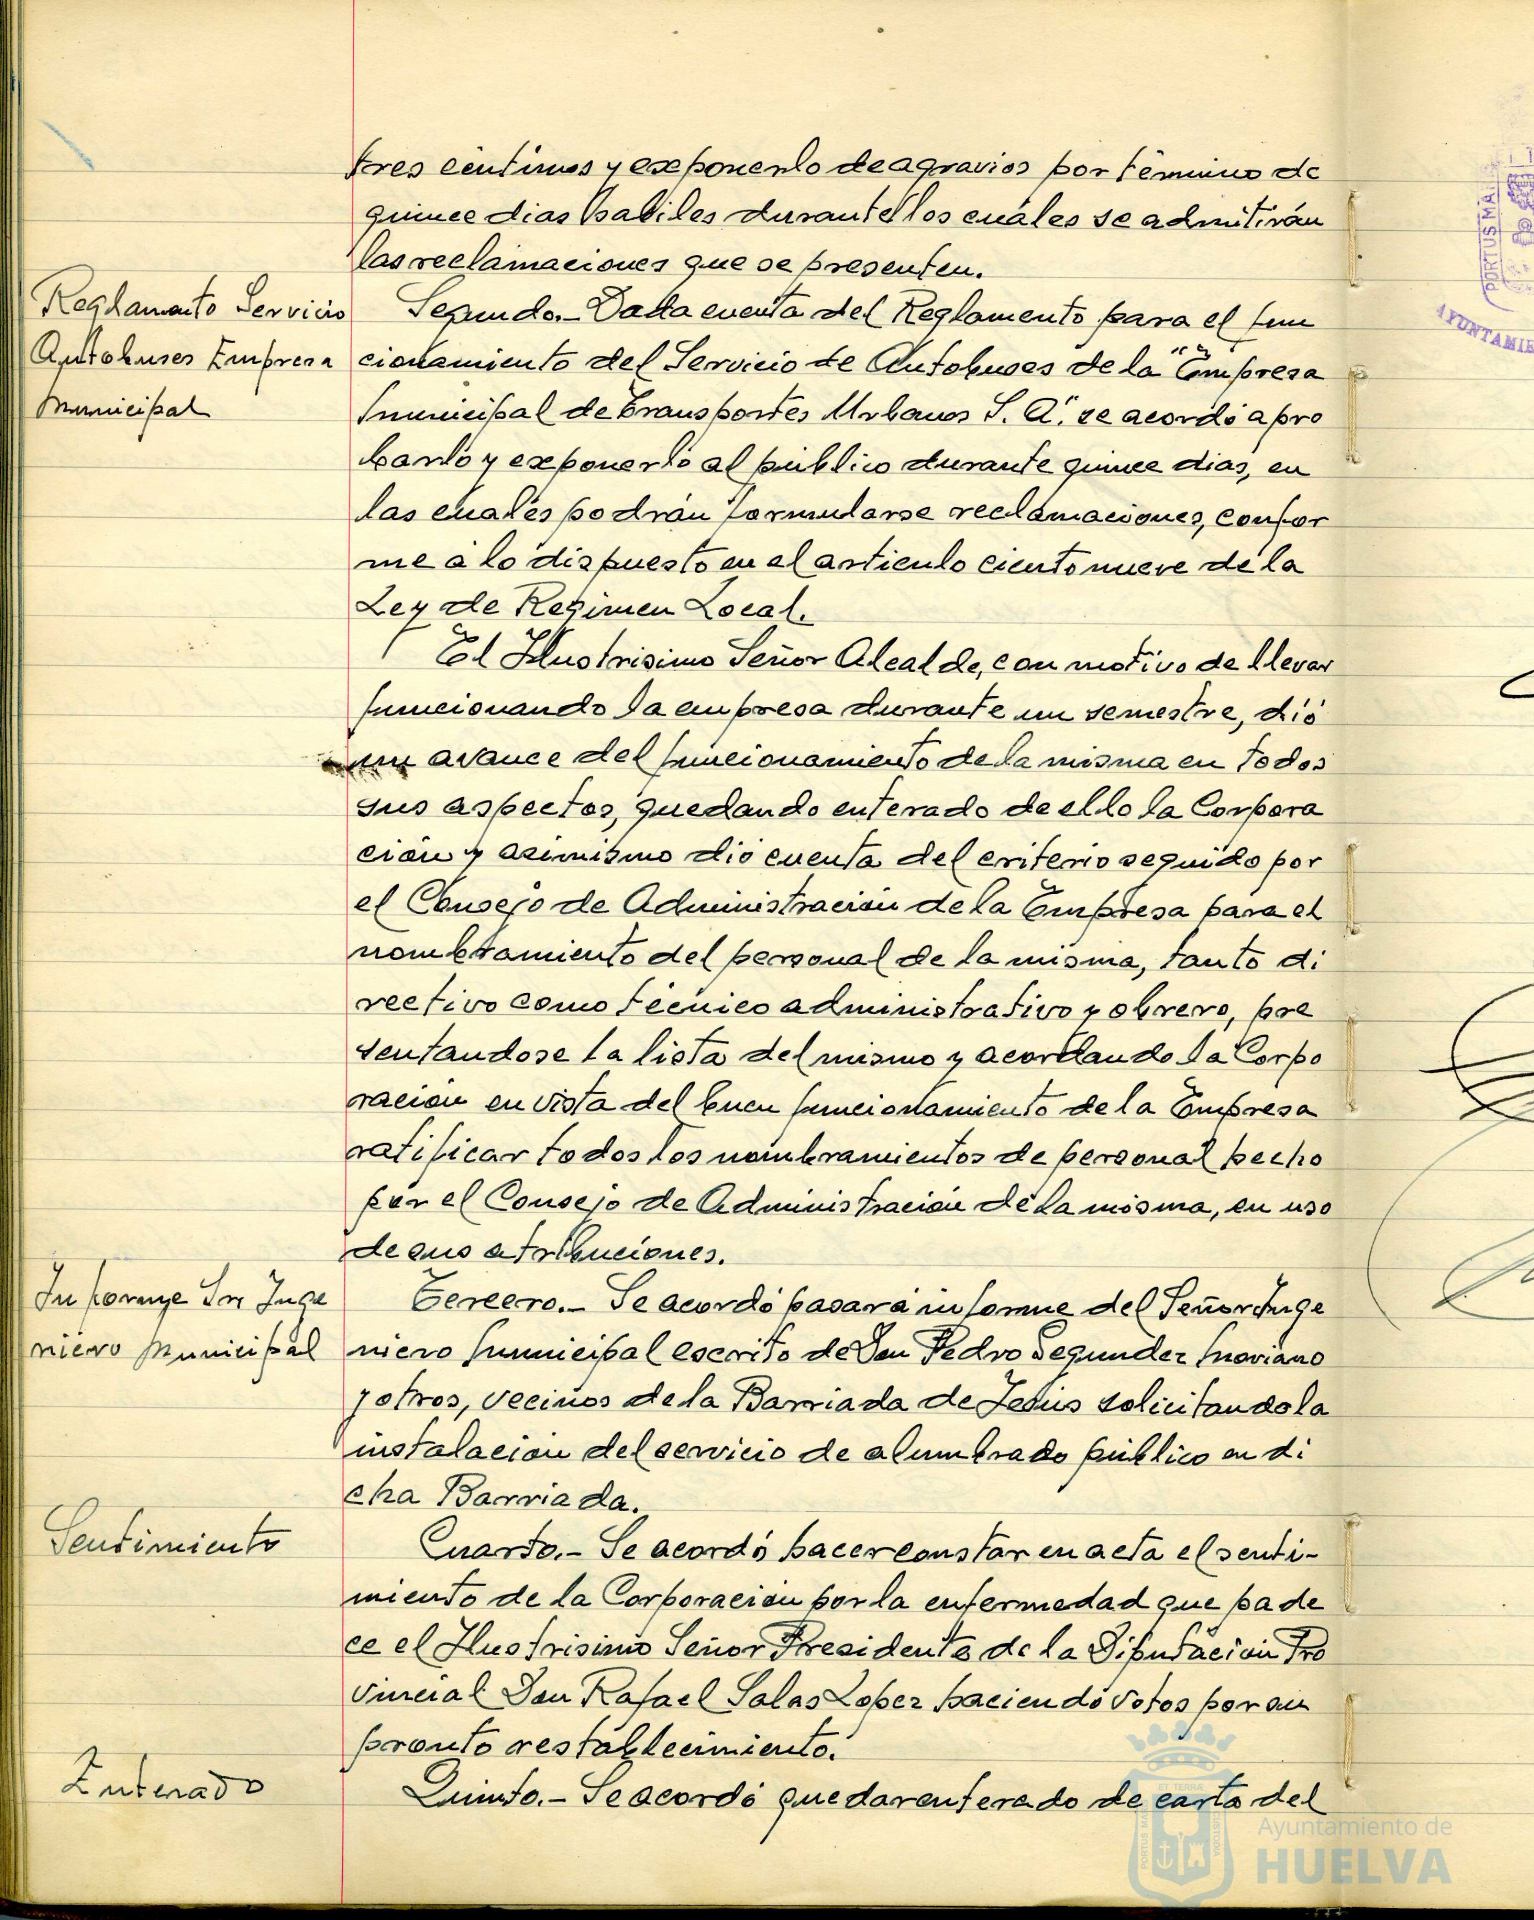 tres centimos y exponerlo de agravios por término de
quince dias habiles durante los cuáles se admitirán
las reclamaciones que se presenten.
Reglamento Servicio
Autobuses Empresa
Municipal
Segundo.- Dada cuenta del Reglamento para el fun
cionamiento del Servicio de Autobuses de la "Empresa
Municipal de Transportes Urbanos S. A." se acordó apro
barlo y exponerlo al público durante quince dias, en
las cuales podrán formularse reclamaciones, confor
me a lo dispuesto en el articulo ciento nueve de la
Ley de Regimen Local.
El Ilustrisimo Señor Alcalde, con motivo de llevar
funcionando la empresa durante un semestre, dió
un avance del funcionamiento de la misma en todos
sus aspectos, quedando enterado de ello la Corpora
ción y asimismo dió cuenta del criterio seguido por
el Consejo de Administración de la Empresa para el
nombramiento del personal de la misma, tanto di
rectivo como técnico administrativo y obrero, pre
sentandose la lista del mismo y acordando la Corpo
ración en vista del buen funcionamiento de la Empresa
ratificar todos los nombramientos de personal hecho
por el Consejo de Administración de la misma, en uso
de sus atribuciones.
Informe Sr. Inge
niero Municipal
Tercero.- Se acordó pasar a informe del Señor Inge
niero Municipal escrito de Don Pedro Segundez Moriano
y otros, vecinos de la Barriada de Jesús solicitando la
instalación del servicio de alumbrado público en di
cha Barriada.
Sentimiento
Cuarto.- Se acordó hacer constar en acta el senti-
miento de la Corporación por la enfermedad que pade
ce el Ilustrisimo Señor Presidente de la Diputación Pro
vincial Don Rafael Salas Lopez haciendo votos por su
pronto restablecimiento.
Enterado
Quinto.- Se acordó quedar enterado de carta del
PORTUS MA
AYUNTAMIE
Ayuntamiento de
HUELVA